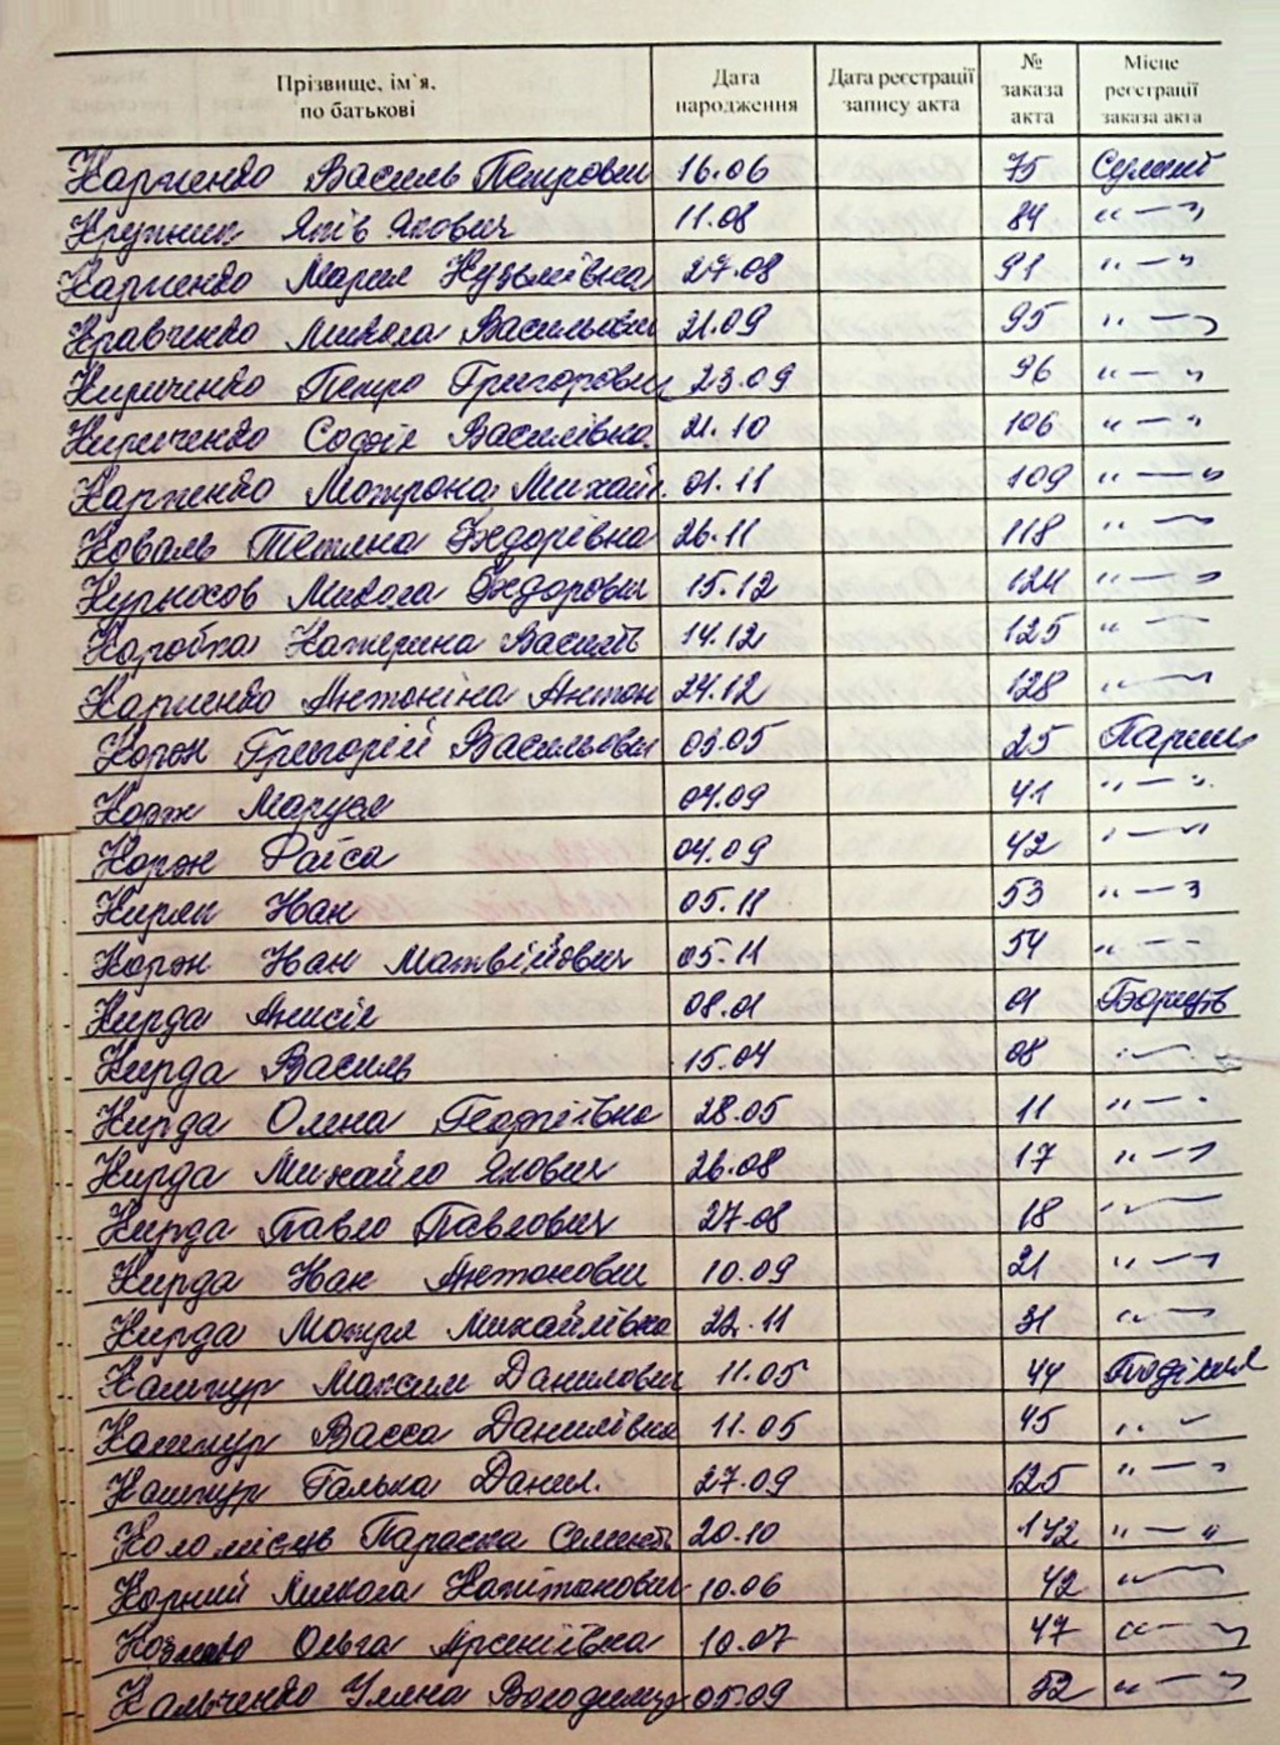 Прізвище, ім`я, по батькові | Дата народження | Дата реєстрації запису акта | № заказа акта | Місце реєстрації заказа акта
Карпенко Василь Петрович 16.06 75
Кружник Яків Якович 11.08 84 " — "
Карпенко Мария Кузьмівна 27.08 91 " — "
Кравченко Микола Васильович 21.09 95 " — "
Кириченко Петро Григорович 23.09 96 " — "
Кириченко Софія Василівна 21.10 106 " — "
Карпенко Мотрона Михайл. 01.11 109 " — "
Коваль Тетяна Федорівна 26.11 118 " — "
Курносов Микола Федорович 15.12 124 " — "
Коробка Катерина Василів 14.12 125 " —
Карпенко Антоніна Антон 24.12 128 " —
Корж Григорій Васильович 03.05 25
Корж Маруся 04.09 41 " — "
Корж Раїса 04.09 42 " — "
Кирян Іван 05.11 53 " — "
Корж Іван Матвійович 05.11 54 " — "
Кирда Анисія 08.01 01
Кирда Василь 15.04 08 " — "
Кирда Олена Георгіївна 28.05 11 " — "
Кирда Михайло Якович 26.08 17 " — "
Кирда Павло Павлович 27.08 18 " —
Кирда Іван Антонович 10.09 21 " — "
Кирда Мотря Михайлівна 22.11 31 " —
Кашпур Максим Данилович 11.05 44
Кашпур Васса Данилівна 11.05 45 " —
Кашпур Галька Данил. 27.09 125 " — "
Коломієць Параска Семенів 20.10 142 " — "
Корній Микола Капітанович 10.06 42 " —
Ольга Арсеніївна 10.07 47 " — "
Кальченко Уляна Володимир 05.09 52 " — "